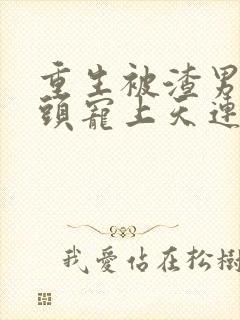 重生被渣男
頭寵上天連
我愛佔在松樹